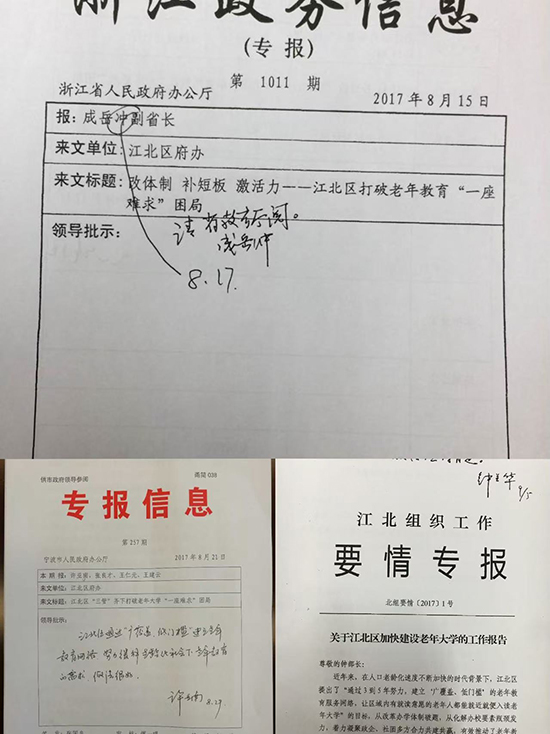 浙江政务信息
(专报)
第 1011 期
浙江省人民政府办公厅 2017年8月15日
报:成岳冲副省长
来文单位:江北区府办
来文标题:改体制 补短板 激活力——江北区打破老年教育“一座
难求”困局
领导批示:
请省教育厅阅。
成岳冲
8.17.
供市政府领导参阅 甬简 039
专报信息
第 257 期
宁波市人民政府办公厅 2017年8月21日
来文单位:江北区府办
来文标题:江北区“三管”齐下打破老年大学“一座难求”困局
领导批示:
8.29
钟关华
9/5
江北组织工作
要情专报
北组要情〔2017〕1号
关于江北区加快建设老年大学的工作报告
尊敬的钟部长:
近年来,在人口老龄化速度不断加快的时代背景下,江北区
提出了“通过3到5年努力,建立‘广覆盖、低门槛’的老年教
育服务网络,让区域内有就读意愿的老年人都能就近就便入读老
年大学”的目标。从改革办学体制破题,从化解办校要素瓶颈发
力,着力凝聚政企、社团多方合力共建共赢,有效推动了老年教